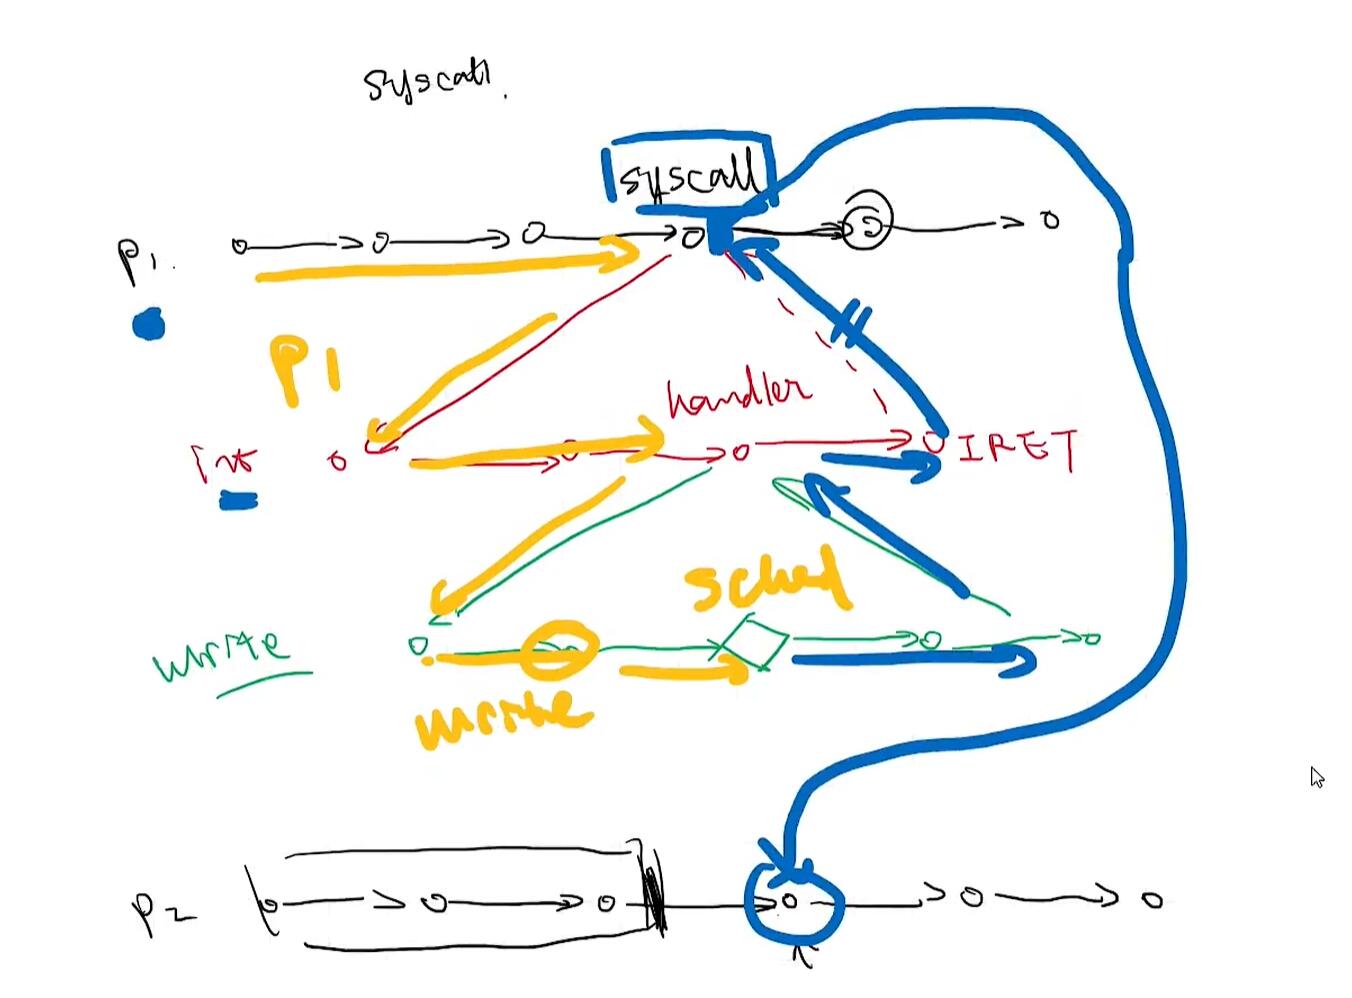 syscall.
syscall
P1.
P1
handler
int
IRET
sched
write
write
P2